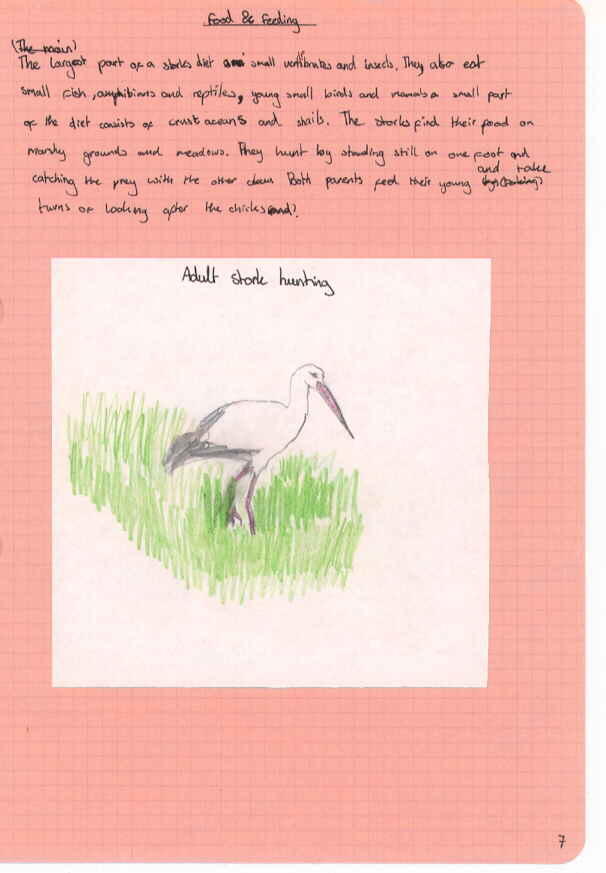 Food & Feeding
(The main)
The largest part of a storks diet are small vertibrates and insects. They also eat
small fish, amphibians and reptiles, young small birds and mamals a small part
of the diet consists of crustaceans and snails. The storks find their food on
marshy grounds and meadows. They hunt by standing still on one foot and
catching the prey with the other claw. Both parents feed their young
and take
turns of looking after the chicks.
Adult stork hunting
7